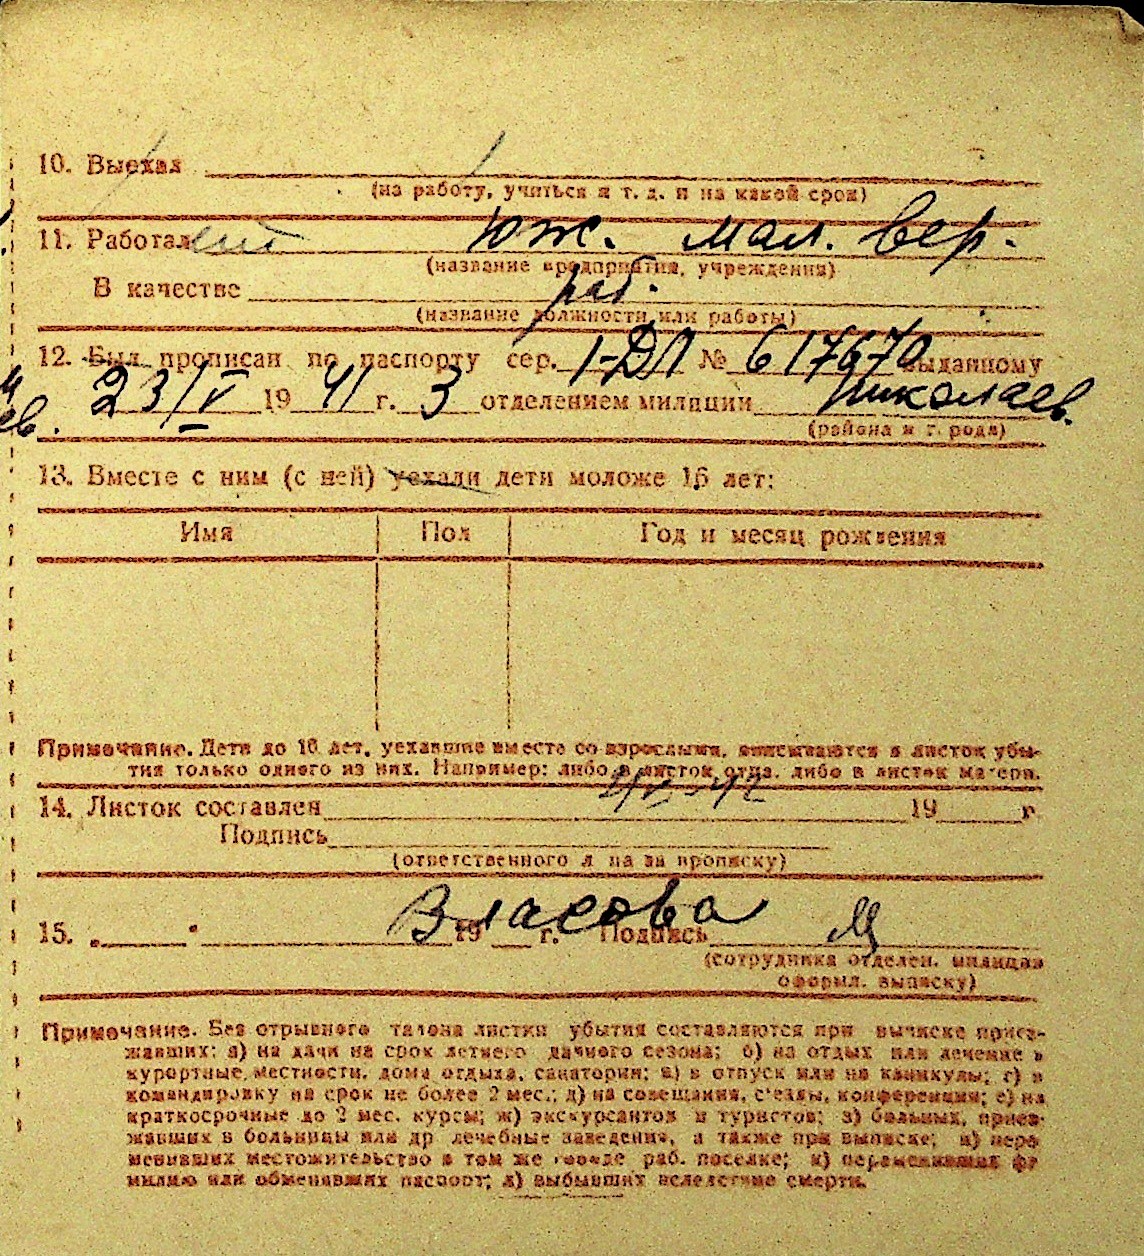 10. Выехал
(на работу, учиться и т. д. и на какой срок)
11. Работает Юж. мал. вер.
(название предприятия, учреждения)
В качестве раб.
(название должности или работы)
12. Был прописан по паспорту сер. I-ДЛ № 617670 выданному
ев. 23/V 1941 г. 3 отделением милиции Николаев.
(района и города)
13. Вместе с ним (с ней) уехали дети моложе 16 лет:
Имя Пол Год и месяц рождения
Примечание. Дети до 16 лет, уехавшие вместе со взрослыми, вписываются в листок убы-
тия только одного из них. Например: либо в листок отца, либо в листок матери.
14. Листок составлен 19 г
Подпись
(ответственного л на за прописку)
Власова
15. „ " 19 г. Подпись
(сотрудника отделен. милиции
оформл. выписку)
Примечание. Без отрывного талона листки убытия составляются при выписке приез-
жавших: а) на дачи на срок летнего дачного сезона; б) на отдых или лечение в
курортные, местности, дома отдыха, санатории; в) в отпуск или на каникулы; г) в
командировку на срок не более 2 мес.; д) на совещания, с'езды, конференции; е) на
краткосрочные до 2 мес. курсы; ж) экскурсантов и туристов; з) больных, приез-
жавших в больницы или др лечебные заведения, а также при выписке; и) пере
менивших местожительство в том же городе раб. поселке; к) переменивших фа
милию или обменявших паспорт; л) выбывших вследствие смерти.